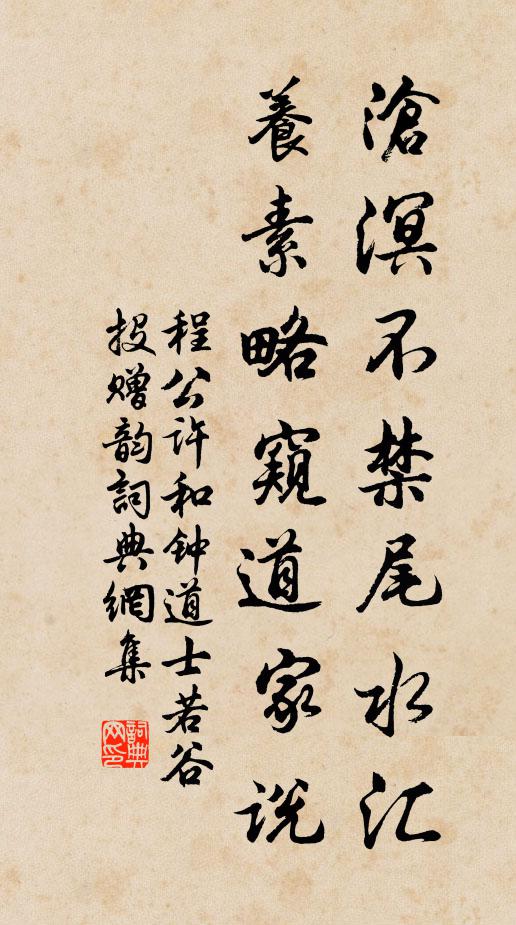 滄溟不禁尾水汇
養素略窺道家说
程公许和钟道士若谷
投赠韵詞典網集
詞典
网印